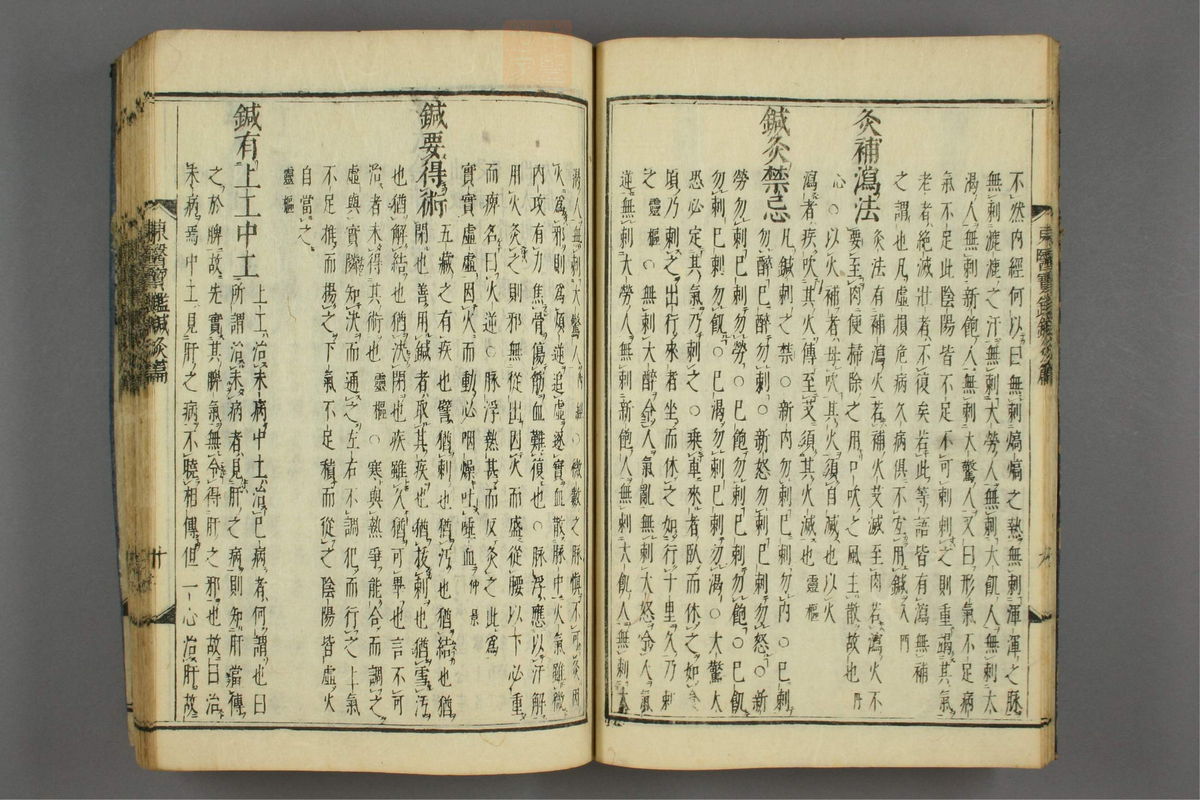 東醫寶鑑鍼灸篇
不然內經何以曰無刺熇熇之熱無刺渾渾之脉
無刺漉漉之汗無刺大勞人無刺大飢人無刺大
渴人無刺新飽人無刺大驚人又曰形氣不足病
氣不足此陰陽皆不足不可刺刺之則重竭其氣
老者絶滅壯者不復矣若此等語皆有瀉無補
之謂也凡虛損危病久病俱不宜用鍼入門
灸補瀉法 灸法有補瀉火若補火艾滅至肉若瀉火不
要至肉便掃除之用口吹之風主散故也丹
心○以火補者毋吹其火須自滅也以火
瀉者疾吹其火傳至艾須其火滅也靈樞
鍼灸禁忌 凡鍼刺之禁○新內勿刺已刺勿內○已刺
勿醉已醉勿刺○新怒勿刺已刺勿怒○新
勞勿刺已刺勿勞○已飽勿刺已刺勿飽○已飢
勿刺已刺勿飢○已渴勿刺已刺勿渴○大驚大
恐必定其氣乃刺之○乘車來者臥而休之如食
頃乃刺之出行來者坐而休之如行十里久乃刺
之靈樞○無刺大醉令人氣亂無刺大怒令人氣
逆無刺大勞人無刺新飽人無刺大飢人無刺大
渴人無刺大驚人內經○微數之脉愼不可灸因
火爲邪則爲煩逆追虛逐實血散脉中火氣雖微
內攻有力焦骨傷筋血難復也○脉浮應以汗解
用火灸之則邪無從出因火而盛從腰以下必重
而痺名曰火逆○脉浮熱甚而反灸之此爲
實實虛虛因火而動必咽燥吐唾血仲景
鍼要得術 五藏之有疾也譬猶刺也猶汚也猶結也猶
閉也善用鍼者取其疾也猶拔刺也猶雪汚
也猶解結也猶決閉也疾雖久猶可畢也言不可
治者未得其術也靈樞○寒與熱爭能合而調之
虛與實隣知決而通之左右不調犯而行之上氣
不足推而揚之下氣不足積而從之陰陽皆虛火
自當之
靈樞
鍼有上工中工 上工治未病中工治已病者何謂也曰
所謂治未病者見肝之病則知肝當傳
之於脾故先實其脾氣無令得肝之邪也故曰治
未病焉中工見肝之病不曉相傳但一心治肝故
東醫寶鑑鍼灸篇 廿